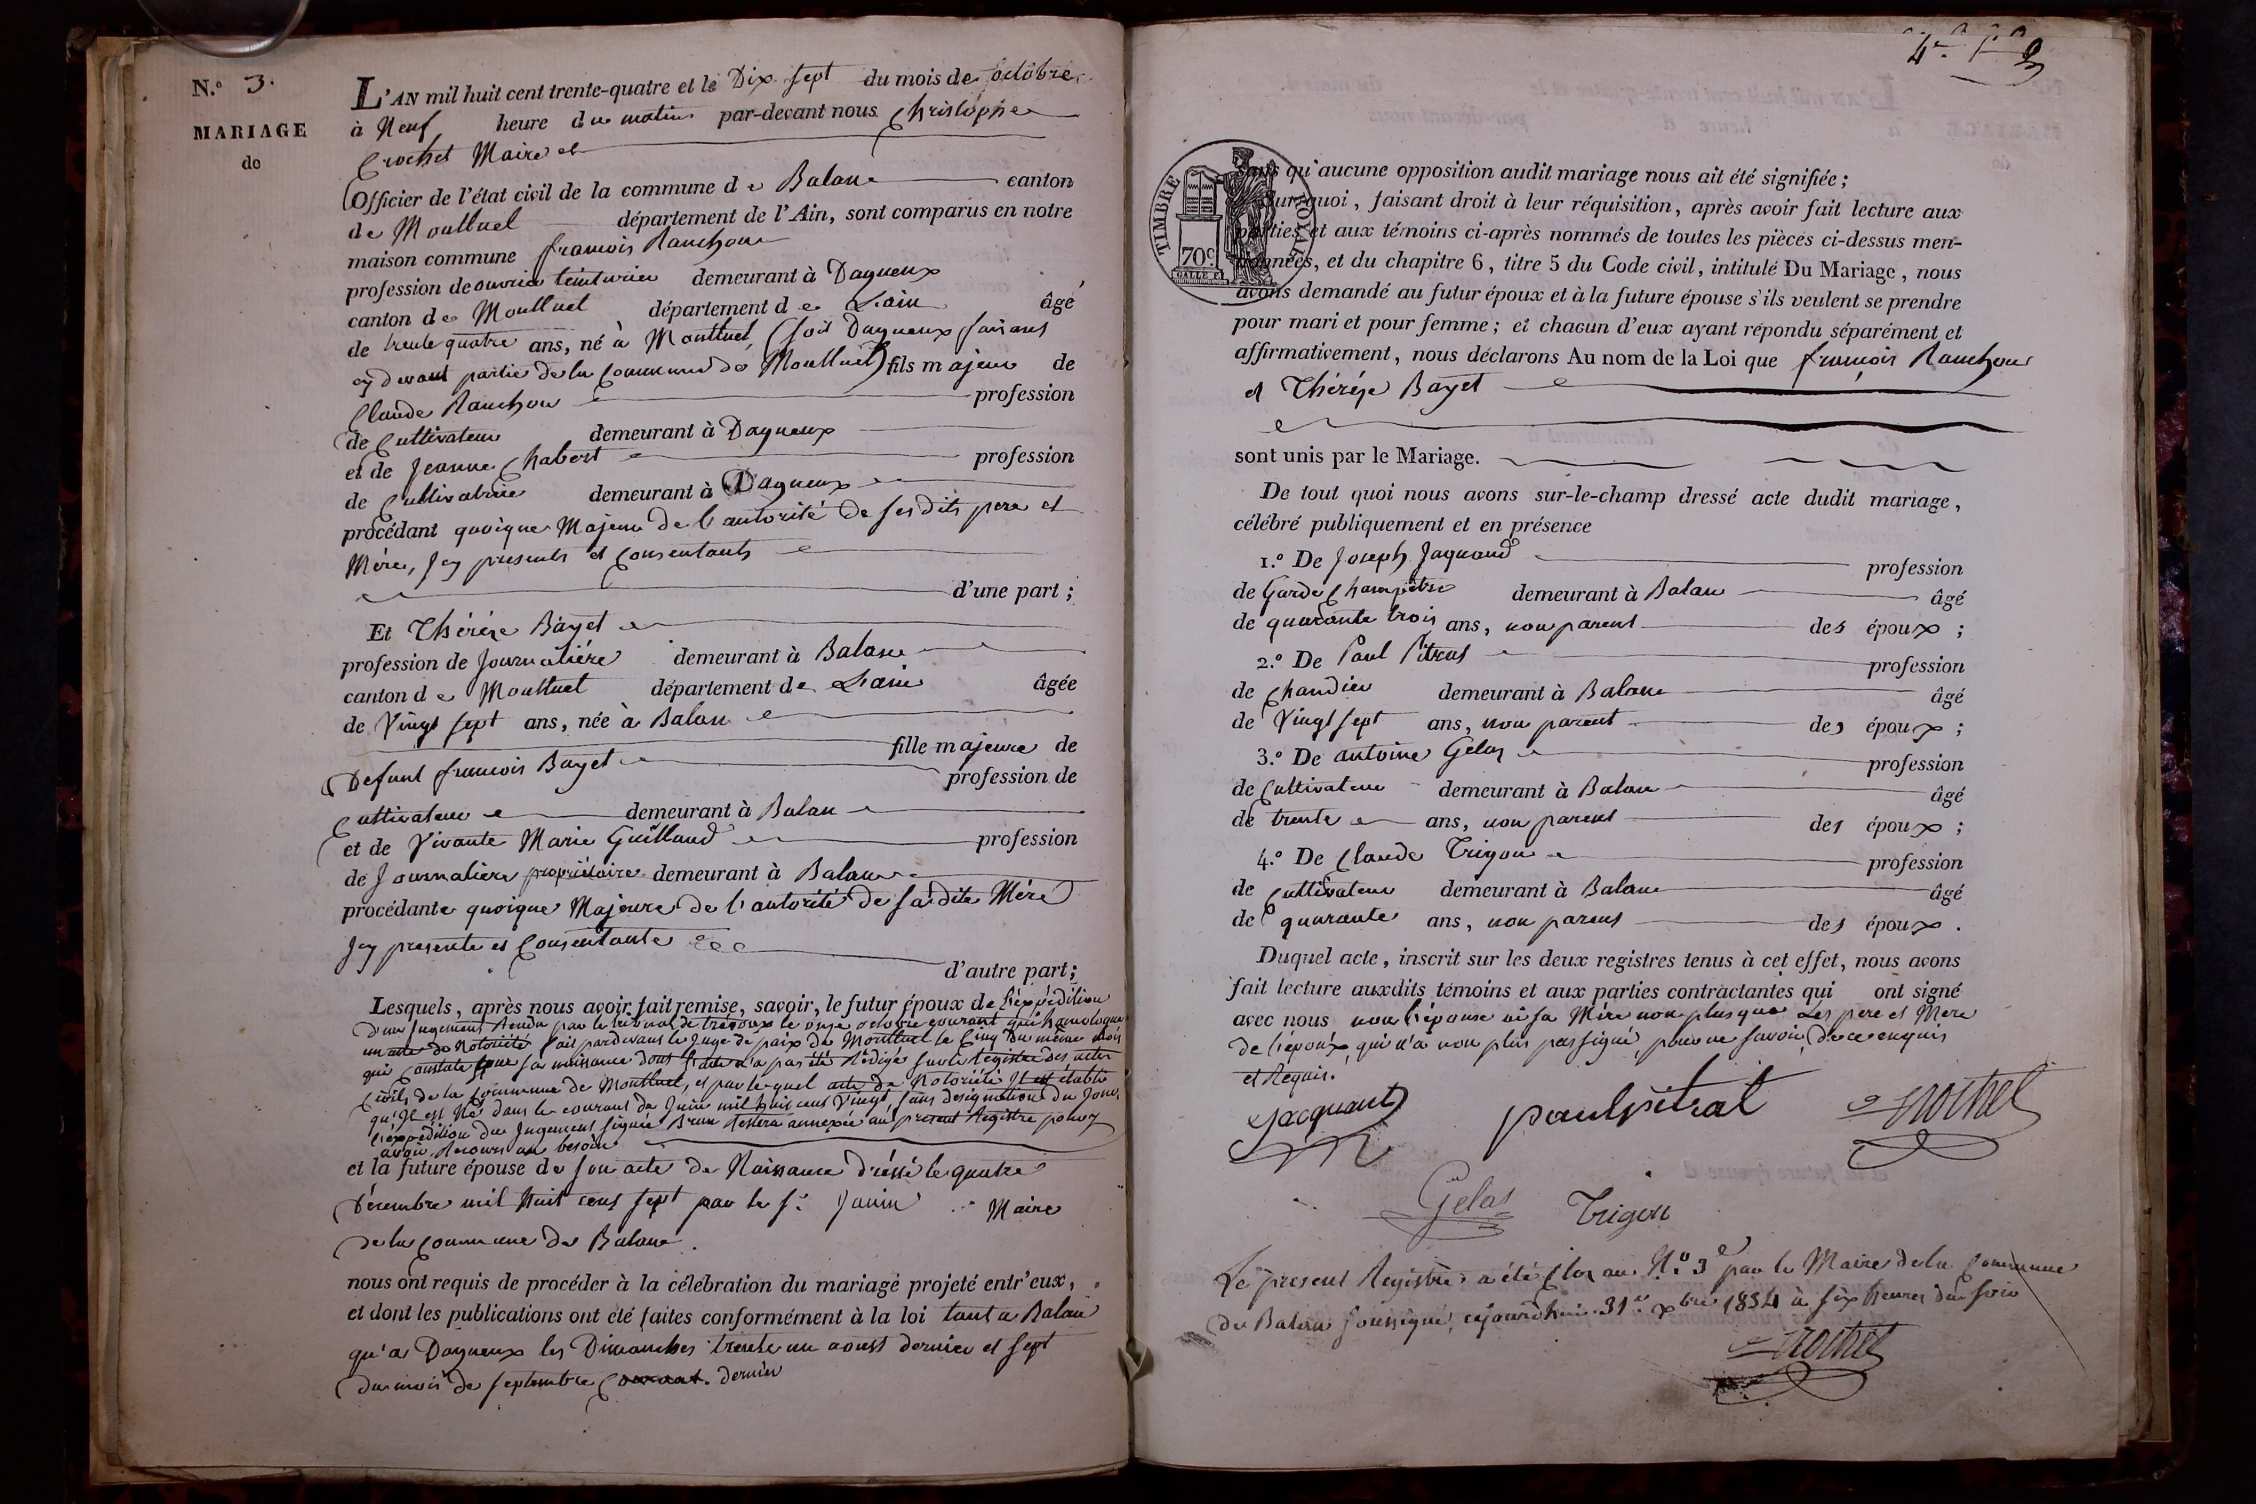 N.º 3.
MARIAGE
de
L'AN mil huit cent trente-quatre et le Dix sept du mois de octobre
à Neuf heure du matin par-devant nous Christophe
Crochet Maire et
Officier de l'état civil de la commune de Balan canton
de Montluel département de l'Ain, sont comparus en notre
maison commune françois Ranchon
profession de ouvrier teinturier demeurant à Dagneux
canton de Montluel département de L'ain âgé
de trente quatre ans, né à Montluel, (soit Dagneux faisant
cy devant partie de la Commune de Montluel) fils majeur de
Claude Ranchon profession
de Cultivateur demeurant à Dagneux
et de Jeanne Chabert profession
de Cultivatrice demeurant à Dagneux
procédant quoique Majeur de l'autorité de ses dits pere et
Mére, Icy presents et Consentants
d'une part ;
Et Thérèze Bayet
profession de Journalière demeurant à Balan
canton de Montluel département de L'ain âgée
de Vingt sept ans, née à Balan
fille majeure de
Defunt francois Bayet profession de
Cultivateur demeurant à Balan
et de Vivante Marie Guilland profession
de Journaliere propriétaire demeurant à Balan
procédante quoique Majeure de l'autorité de sa dite Mére
Icy presente et Consentante
d'autre part ;
Lesquels, après nous avoir fait remise, savoir, le futur époux de l'éxpédition
d'un Jugement Rendu par le tribunal de trévoux le onze octobre courant qui homologue
un acte de Notoriété fait pardevant le Juge de paix de Montluel le Cinq du même Mois
qui Constate que sa naissance dont l'acte n'a pas été Rédigé sur le Registre des actes
Civils de la Commune de Montluel, et par lequel acte de Notoriété Il est établi
qu'Il est Né dans le courant de Juin mil huit cent Vingt, sans designation du Jour,
l'éxpédition du Jugement signée Brun Restera annexée au présent Registre pour y
avoir Recours au besoin
et la future épouse de son acte de Naissance dréssé le quatre
Décembre mil huit cent sept par le S.r Janin Maire
de la Commune de Balan.
nous ont requis de procéder à la célébration du mariage projeté entr'eux,
et dont les publications ont été faites conformément à la loi tant a Balan
qu'a Dagneux les Dimanches trente un aoust dernier et sept
du mois de septembre courant. dernier
TIMBRE ROYAL
70c.
sans qu'aucune opposition audit mariage nous ait été signifiée ;
Pourquoi, faisant droit à leur réquisition, après avoir fait lecture aux
parties et aux témoins ci-après nommés de toutes les pièces ci-dessus men-
tionnées, et du chapitre 6, titre 5 du Code civil, intitulé Du Mariage, nous
avons demandé au futur époux et à la future épouse s'ils veulent se prendre
pour mari et pour femme ; et chacun d'eux ayant répondu séparément et
affirmativement, nous déclarons Au nom de la Loi que françois Ranchon
et Thérèze Bayet
sont unis par le Mariage.
De tout quoi nous avons sur-le-champ dressé acte dudit mariage,
célébré publiquement et en présence
1.º De Joseph Jaquand profession
de Garde Champêtre demeurant à Balan âgé
de quarante trois ans, non parent des époux ;
2.º De Paul Pitrat profession
de Chandier demeurant à Balan âgé
de Vingt sept ans, non parent des époux ;
3.º De antoine Gelas profession
de Cultivateur demeurant à Balan âgé
de trente ans, non parent des époux ;
4.º De Claude Trigon profession
de Cultivateur demeurant à Balan âgé
de quarante ans, non parent des époux.
Duquel acte, inscrit sur les deux registres tenus à cet effet, nous avons
fait lecture auxdits témoins et aux parties contractantes qui ont signé
avec nous non l'épouse ni sa Mére non plus que Les pere et Mere
de l'époux, qui n'a non plus pas signé, pour ne savoir, de ce enquis
et Requis.
Jacquand paul pitrat Crochet
Gelas Trigon
Le present Registre a été Clos au N.º 3 par le Maire de la Commune
de Balan soussigné, cejourd'hui 31 xbre 1834 à six heures du soir
Crochet